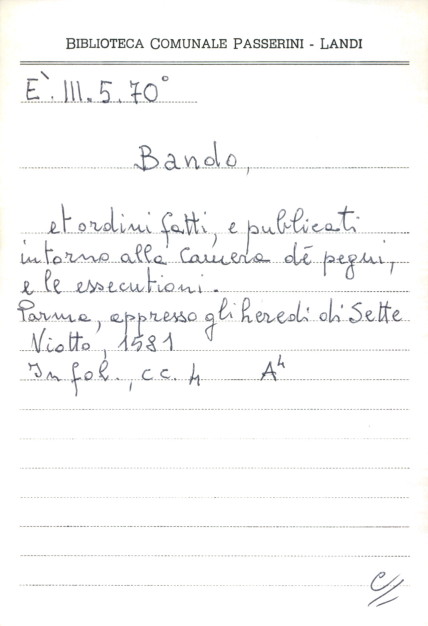 BIBLIOTECA COMUNALE PASSERINI - LANDI
E`. III. 5. 70°
Bando,
et ordini fatti, e publicati
intorno alla Camera dé pegni,
e le essecutioni.
Parma, appresso gli heredi di Sette
Viotto, 1581
In fol., cc. 4 A⁴
C